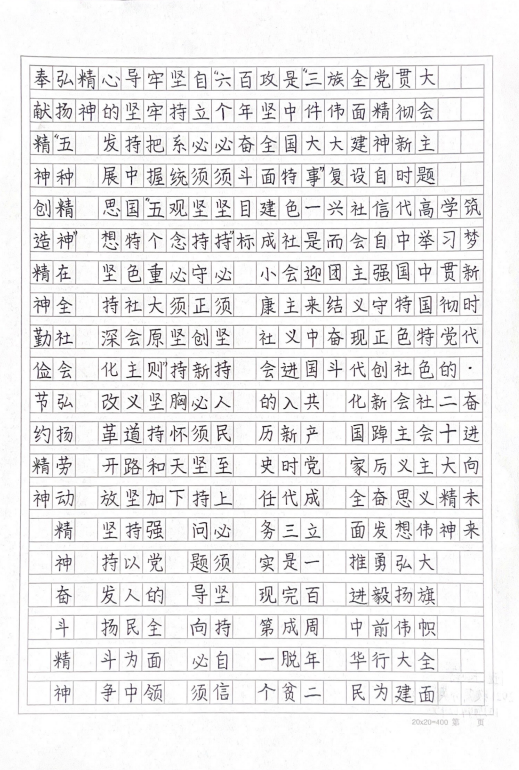 筑梦新时代·奋进向未来
学习贯彻党的二十大精神
大会主题高举中国特色社会主义伟大旗帜全面
贯彻新时代中国特色社会主义思想弘扬伟大建
党精神自信自强守正创新踔厉奋发勇毅前行为
全面建设社会主义现代化国家全面推进中华民
族伟大复兴而团结奋斗
“三件大事”一是迎来中国共产党成立一百周年二
是中国特色社会主义进入新时代三是完成脱贫
攻坚全面建成小康社会的历史任务实现第一个
百年奋斗目标
“六个必须”必须坚持人民至上必须坚持自信
自立必须坚持守正创新必须坚持问题导向必须
坚持系统观念
牢牢把握“五个重大原则”坚持和加强党的全面领
导坚持中国特色社会主义道路坚持以人民为中
心的发展思想坚持深化改革开放坚持发扬斗争
精神
弘扬“五种精神”在全社会弘扬劳动精神奋斗精神
奉献精神创造精神勤俭节约精神
20x20=400 第 页